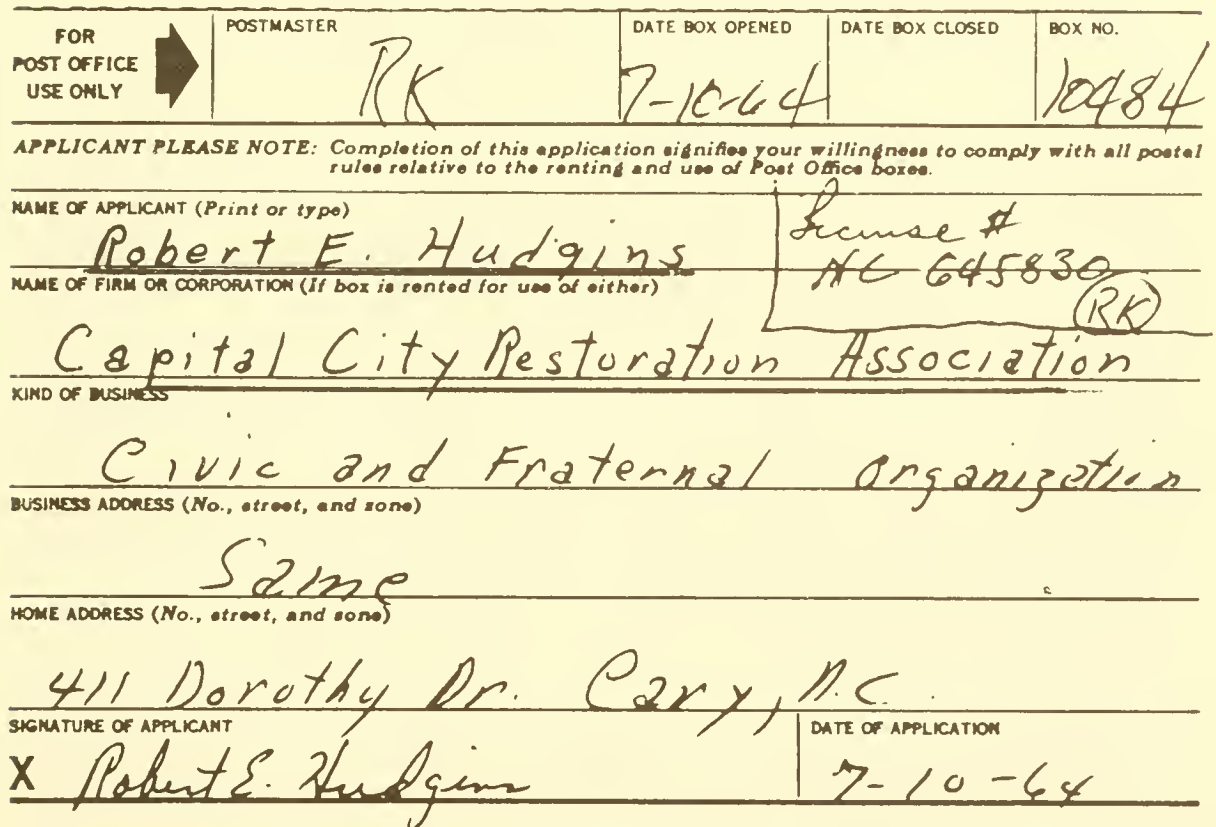 FOR POST OFFICE USE ONLY
POSTMASTER
RK
DATE BOX OPENED
7-10-64
DATE BOX CLOSED
BOX NO.
10484
APPLICANT PLEASE NOTE: Completion of this application signifies your willingness to comply with all postal
rules relative to the renting and use of Post Office boxes.
NAME OF APPLICANT (Print or type)
Robert E. Hudgins
License #
NC 645830
RK
NAME OF FIRM OR CORPORATION (If box is rented for use of either)
Capital City Restoration Association
KIND OF BUSINESS
Civic and Fraternal Organization
BUSINESS ADDRESS (No., street, and zone)
Same
HOME ADDRESS (No., street, and zone)
411 Dorothy Dr. Cary, N.C.
SIGNATURE OF APPLICANT
X Robert E. Hudgins
DATE OF APPLICATION
7-10-64